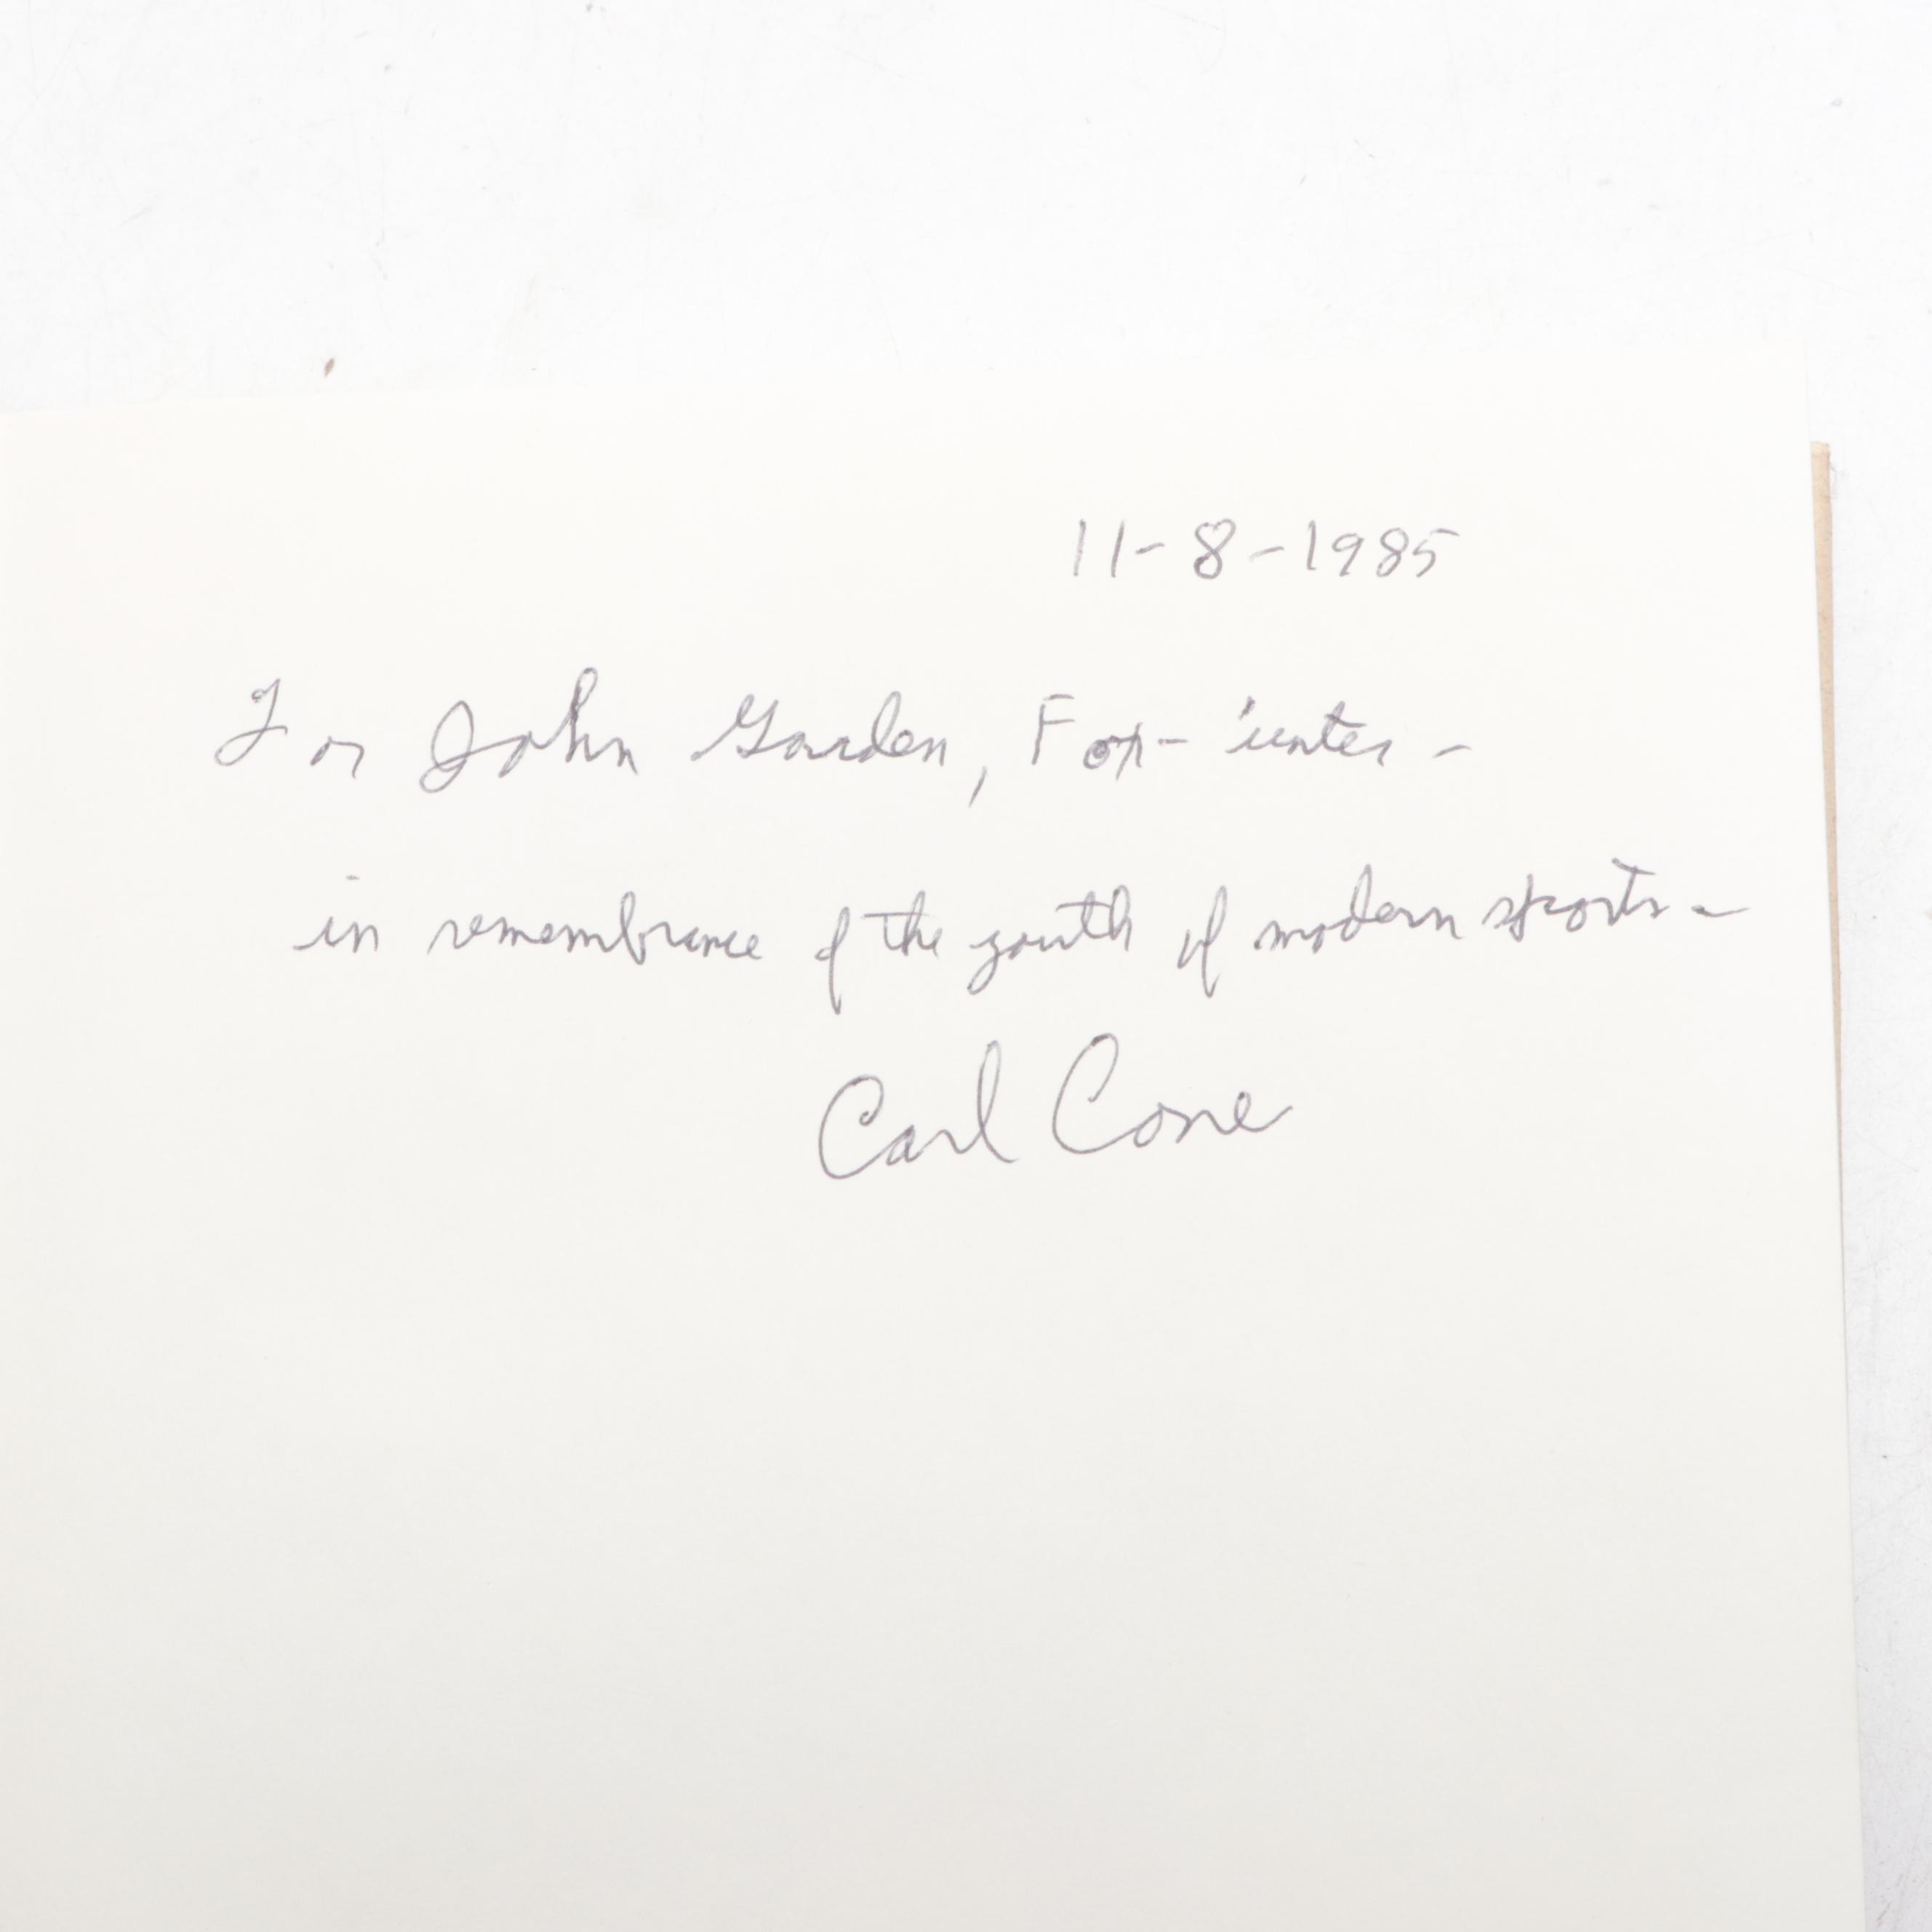 11-8-1985
For John Garden, Fox-'unter -
in remembrance of the youth of modern sports -
Carl Cone